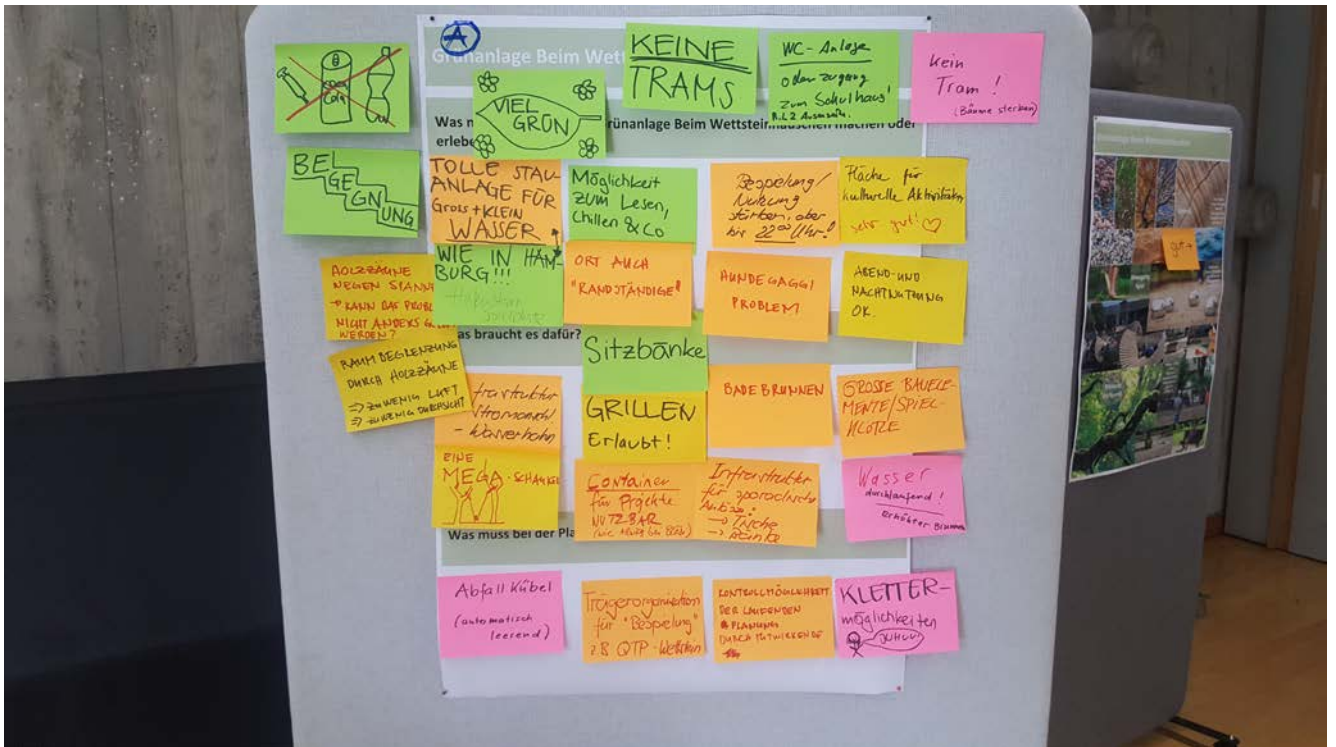 A
Grünanlage Beim Wett
KEINE
TRAMS
WC-Anlage
oder Zugang
zum Schulhaus!
kein
Tram!
(Bäume sterben)
VIEL
GRÜN
Was
Grünanlage Beim Wettsteinhäuschen machen oder
erlebe
BE
GE
GNUNG
TOLLE STAU
ANLAGE FÜR
GROSS + KLEIN
WASSER
Möglichkeit
zum Lesen,
Chillen & Co
Bespielung/
Nutzung
stärken, aber
bis 22 00 Uhr!
Fläche für
kulturelle Aktivitäten,
sehr gut!
HOLZZÄUNE
WEGEN SPANN
KANN DAS PROBL
NICHT ANDERS
WERDEN?
WIE IN HAM-
BURG!!!
ORT AUCH
"RANDSTÄNDIGE"
HUNDEGAGGI
PROBLEM
ABEND- UND
NACHTNUTZUNG
OK.
as braucht es dafür?
RAUMBEGRENZUNG
DURCH HOLZZÄUNE
⇒ ZU WENIG LUFT
⇒ ZU WENIG DURCHSICHT
frastruktur
- Wasserhahn
Sitzbänke
GRILLEN
Erlaubt!
BADEBRUNNEN
GROSSE BAUELE-
MENTE/SPIEL-
KLÖTZE
EINE
MEGA-SCHAUKEL
Container
für Projekte
NUTZBAR
Infrastruktur
für sporadische
Anlässe:
→ Tische
→ Bänke
Wasser
durchlaufend!
erhöhter Brunnen
Was muss bei der Pla
Abfall Kübel
(automatisch
leerend)
Trägerorganisation
für "Bespielung"
z.B QTP-Wettstein
KONTROLLMÖGLICHKEIT
DER LAUFENDEN
PLANUNG
DURCH MITWIRKENDE
KLETTER-
möglichkeiten
JUHUU!
gut